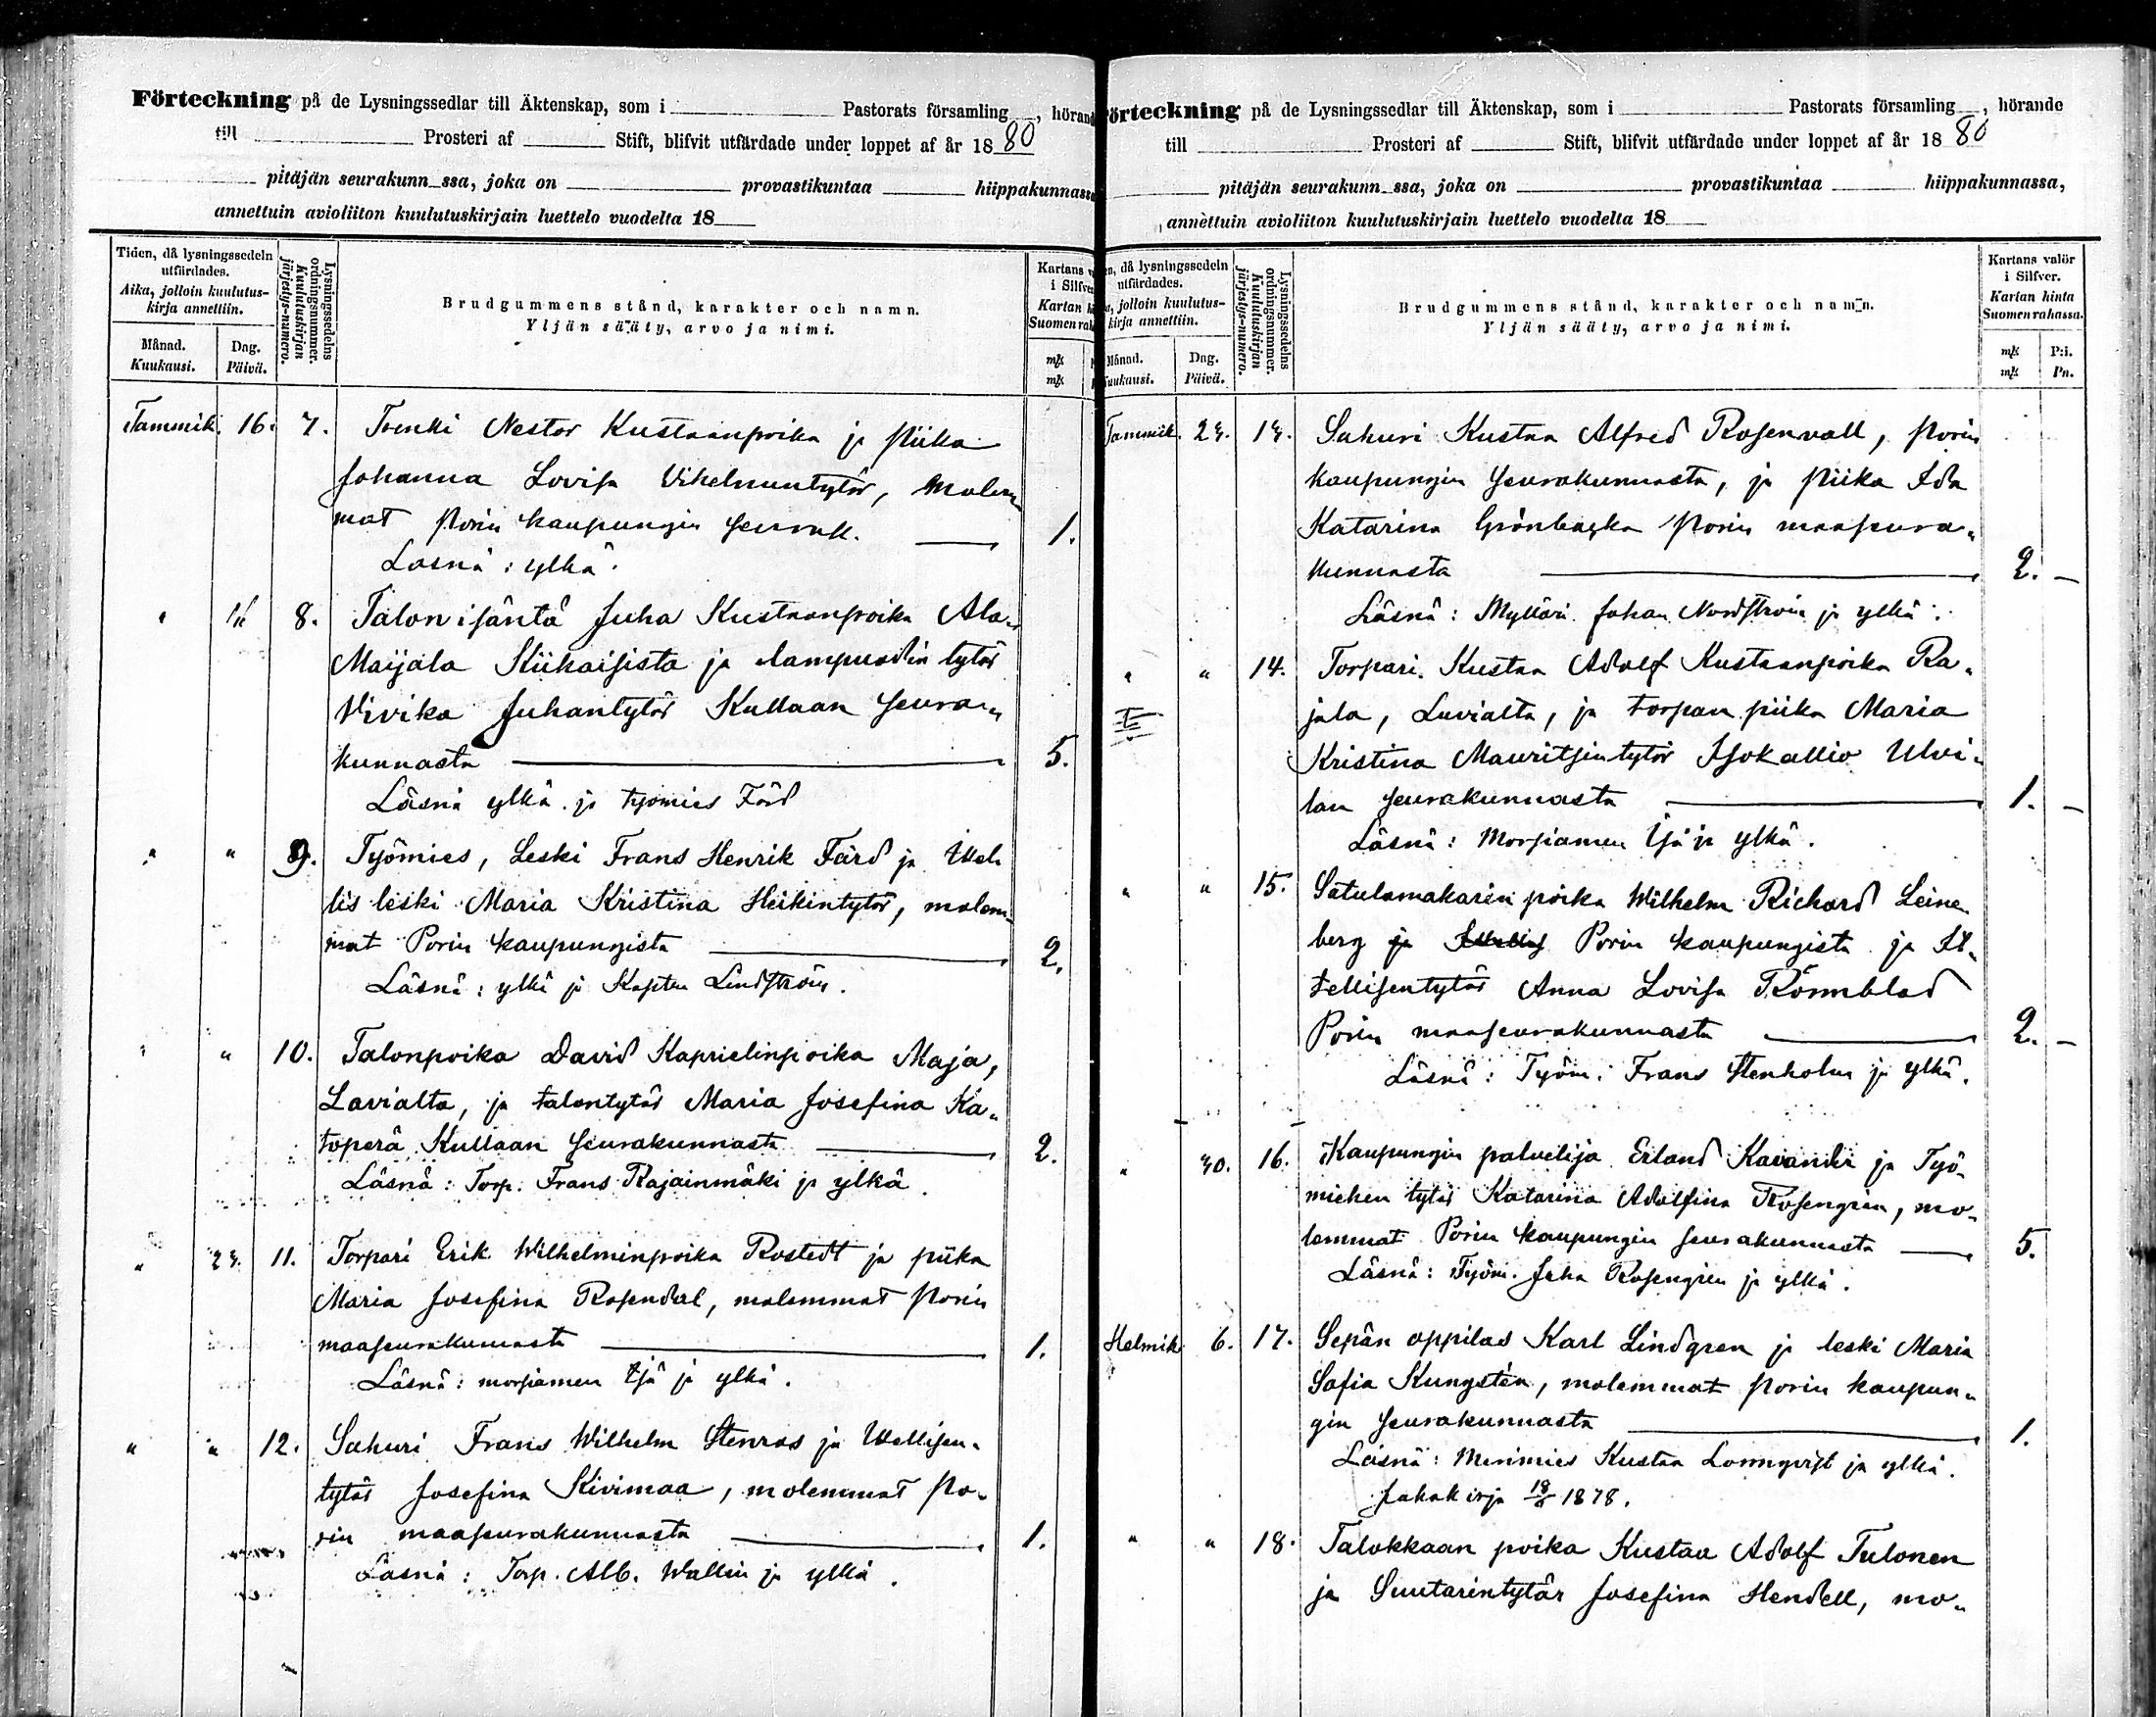 Förteckning på de Lysningssedlar till Äktenskap, som i Pastorats församling, hörande
till Prosteri af Stift, blifvit utfärdade under loppet af år 1880
pitäjän seurakunn ssa, joka on provastikuntaa hiippakunnassa
annettuin avioliiton kuulutuskirjain luettelo vuodelta 18
Tiden, då lysningssedeln
utfärdades.
Aika, jolloin kuulutus-
kirja annettiin.
Månad.
Kuukausi.
Dag.
Päivä.
Lysningssedelns
ordningsnummer.
Kuulutuskirjan
järjestys-numero.
Brudgummens stånd, karakter och namn.
Yljän sääty, arvo ja nimi.
Kartans
i Silfver
Kartan
Suomen
mk
mk
Tammik. 16. 7. Trenki Nestor Kustaanpoika ja piika
Johanna Lovisa Vihelmuntytär, molem
mat Porin kaupungin seurak. 1.
Läsnä: ylkä.
" 16 8. Talon isäntä Juha Kustaanpoika Ala-
Maijala Kiikaisista ja lampuodin tytär
Vivika Juhantytär Kullaan seura-
kunnasta 5.
Läsnä ylkä ja työmies Färd
" " 9. Työmies, Leski Frans Henrik Färd ja itsel
lis leski Maria Kristina Heikintytär, molem-
mat Porin kaupungista 2.
Läsnä: ylkä ja Kapten Lindström.
" " 10. Talonpoika David Kaprielinpoika Maja,
Lavialta, ja talontytär Maria Josefina Ka-
toperä Kullaan seurakunnasta 2.
Läsnä: Torp. Frans Rajainmäki ja ylkä.
" 23. 11. Torpari Erik Wilhelminpoika Rostedt ja piika
Maria Josefina Rosendal, molemmat Porin
maaseurakunnasta 1.
Läsnä: morsiamen isä ja ylkä.
" " 12. Sahuri Frans Wilhelm Stenros ja itsellisen-
tytär Josefina Kivimaa, molemmat Po-
rin maaseurakunnasta 1.
Läsnä: Torp. Alb. Wallin ja ylkä.
Förteckning på de Lysningssedlar till Äktenskap, som i Pastorats församling, hörande
till Prosteri af Stift, blifvit utfärdade under loppet af år 1880
pitäjän seurakunn ssa, joka on provastikuntaa hiippakunnassa,
annettuin avioliiton kuulutuskirjain luettelo vuodelta 18
då lysningssedeln
utfärdades.
jolloin kuulutus-
kirja annettiin.
Månad.
Kuukausi.
Dag.
Päivä.
Lysningssedelns
ordningsnummer.
Kuulutuskirjan
järjestys-numero.
Brudgummens stånd, karakter och namn.
Yljän sääty, arvo ja nimi.
Kartans valör
i Silfver.
Kartan hinta
Suomen rahassa.
mk P:i.
mk Pn.
Tammik. 23. 13. Sahuri Kustaa Alfred Rosenvall, Porin
kaupungin seurakunnasta, ja piika Ida
Katarina Grönbacka Porin maaseura-
kunnasta 2. –
Läsnä: Mylläri Johan Nordström ja ylkä.
" " 14. Torpari Kustaa Adolf Kustaanpoika Ra-
jala, Luvialta, ja torpan piika Maria
Kristina Mauritsintytär Isokallio Ulvi-
lan seurakunnasta 1. –
Läsnä: Morsiamen isä ja ylkä.
" " 15. Satulamakarin poika Wilhelm Richard Leine
berg ja Porin kaupungista ja It-
sellisentytär Anna Lovisa Rönnblad
Porin maaseurakunnasta 2. –
Läsnä: Työm. Frans Stenholm ja ylkä.
" 30. 16. Kaupungin palvelija Erland Kavander ja Työ-
miehen tytär Katarina Adolfina Rosengren, mo-
lemmat Porin kaupungin seurakunnasta 5.
Läsnä: Työm. Juha Rosengren ja ylkä.
Helmik. 6. 17. Sepän oppilas Karl Lindgren ja leski Maria
Sofia Kungstén, molemmat Porin kaupun-
gin seurakunnasta 1.
Läsnä: Merimies Kustaa Lönnqvist ja ylkä.
Jakokirja 1878.
" " 18. Talokkaan poika Kustaa Adolf Tulonen
ja Suutarintytär Josefina Hendell, mo-